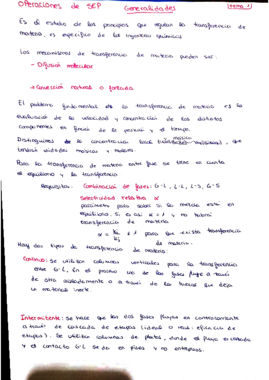 Operaciones de SEP
Generalidades
Tema 1
Es el estudio de los principios que regulan la transferencia de
materia, es específica de los ingenieros químicos
Los mecanismos de transferencia de materia pueden ser:
- Difusión molecular
→ Convección natural o forzada
El problema fundamental de la transferencia de materia es la
evaluación de la velocidad y concentración de los distintos
componentes en función de la posición y el tiempo.
Distinguimos de la concentración local másica, que
tendrá unidades másicas y molares.
Para la transferencia de materia entre fase se tiene en cuenta
el equilibrio y la transferencia
Requisitos: Combinación de fases: G-L, L-L, S-L, G-S
Selectividad relativa α
parámetro para saber si la mezcla está en
equilibrio. Si es así α = 1 y no habrá
transferencia de materia
α = ki/kj ≠ 1 para que exista transferencia
de materia.
Hay dos tipos de transferencia
de materia:
Continuo: se utilizan columnas verticales para la transferencia
entre G-L. En el proceso una de las fases fluye a través
de otra aisladamente o a través de las torres que deja
la material inerte.
Intermitente: se hace que las dos fases fluyan en contracorriente
a través de cascada de etapas (ideal o real: eficacia de
etapas). Se utilizan columnas de platos, donde el flujo es cascada
y el contacto G-L se da en platos y no entrepisos.